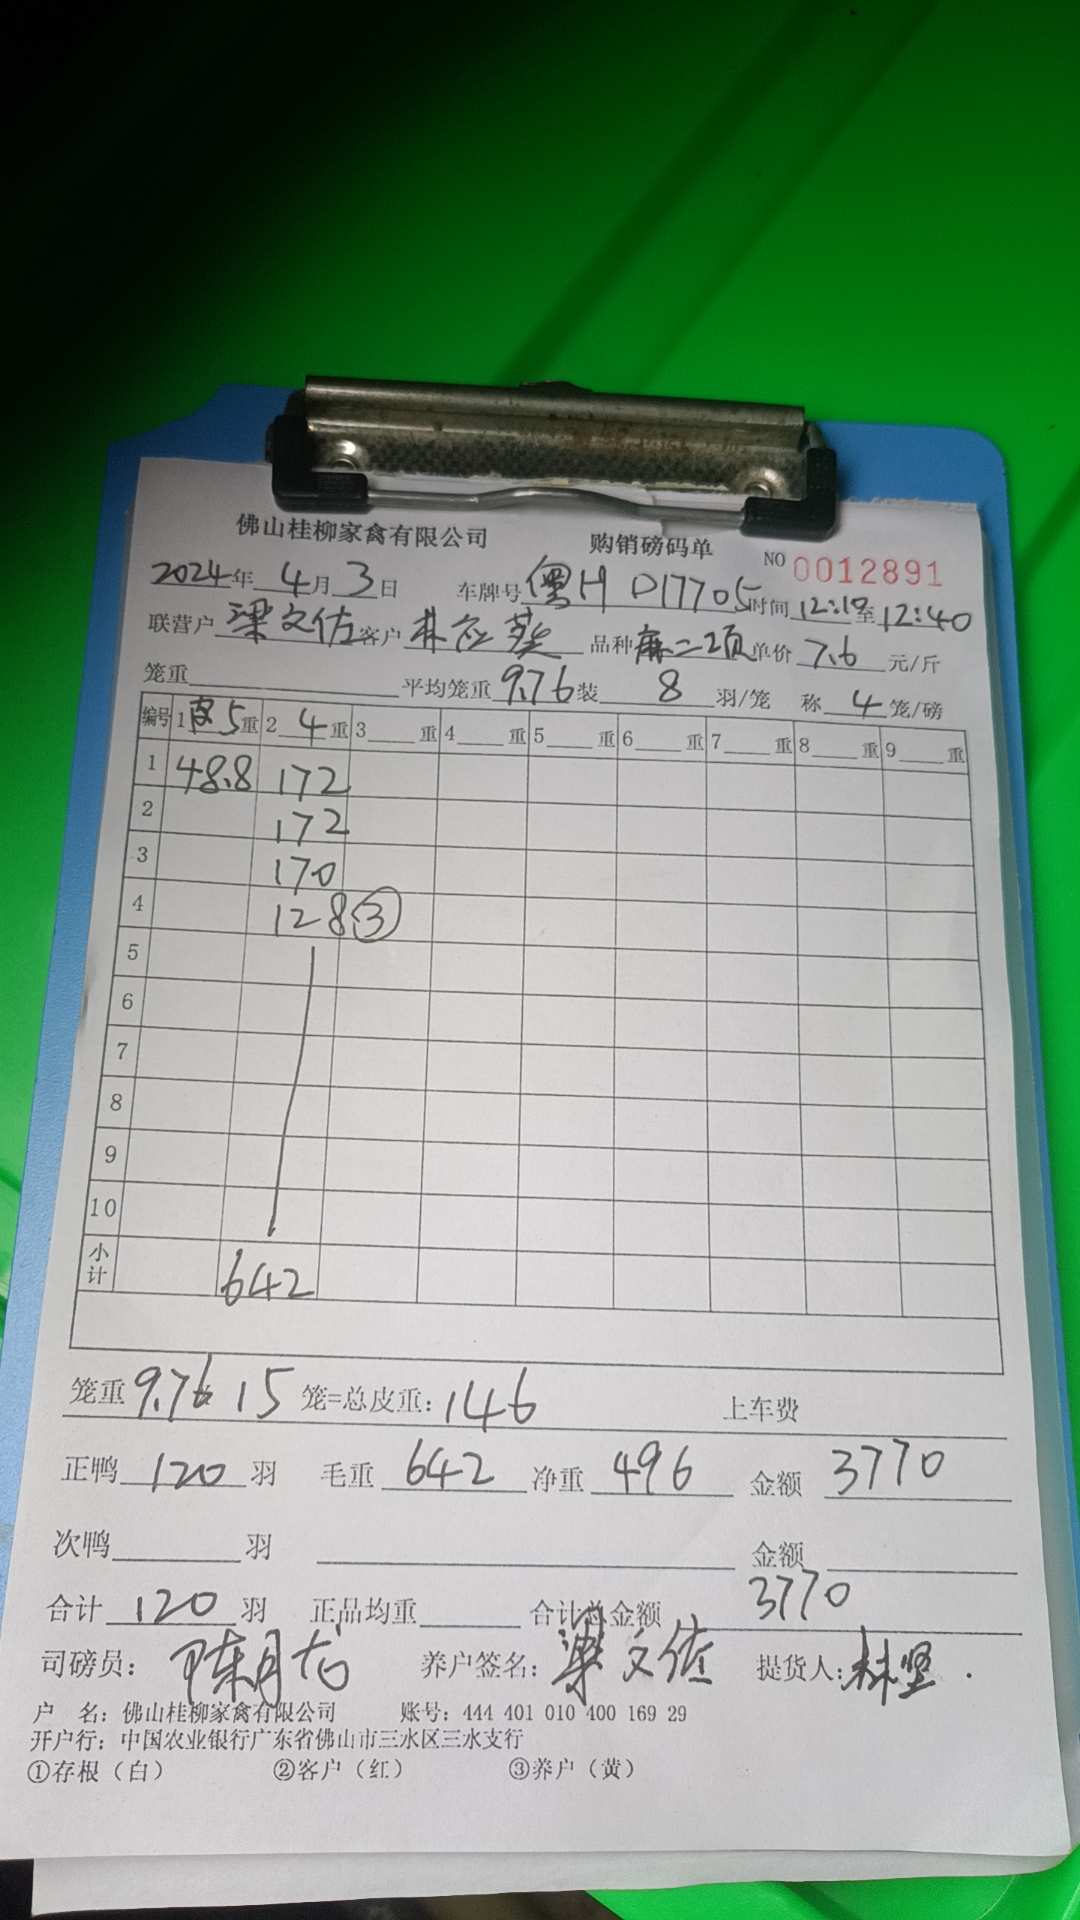 佛山桂柳家禽有限公司 购销磅码单 NO 0012891
2024年 4月 3日 车牌号 粤H D17705 时间 12:19至12:40
联营户 梁文佐 客户 林应葵 品种 麻二项 单价 7.6 元/斤
笼重 平均笼重 9.76 装 8 羽/笼 称 4 笼/磅
编号 1 皮5重 2 4 重 3 重 4 重 5 重 6 重 7 重 8 重 9 重
1 48.8 172
2 172
3 170
4 128 ③
5
6
7
8
9
10
小计 642
笼重 9.76 15 笼=总皮重: 146 上车费
正鸭 120 羽 毛重 642 净重 496 金额 3770
次鸭 羽 金额
合计 120 羽 正品均重 合计总金额 3770
司磅员: 陈月 养户签名: 梁文佐 提货人: 林坚
户 名: 佛山桂柳家禽有限公司 账号: 444 401 010 400 169 29
开户行: 中国农业银行广东省佛山市三水区三水支行
①存根（白） ②客户（红） ③养户（黄）